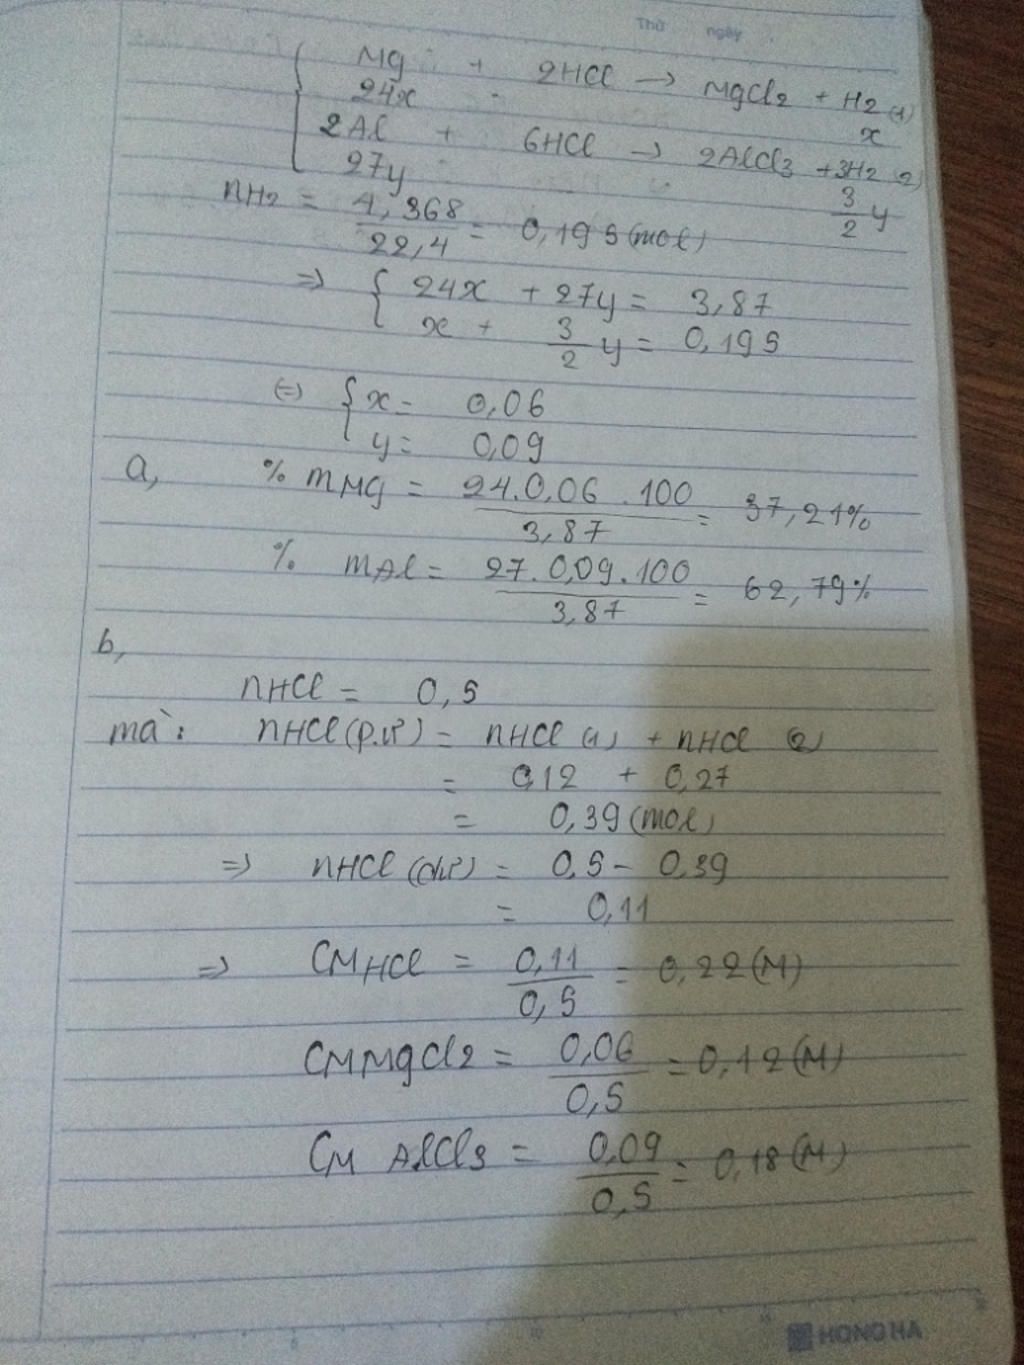 Thứ ngày
Mg + 2HCl → MgCl2 + H2 (1)
24x x
2Al + 6HCl → 2AlCl3 + 3H2 (2)
27y 3/2 y
nH2 = 4,368/22,4 = 0,195 (mol)
=> { 24x + 27y = 3,87
x + 3/2 y = 0,195
(=) { x = 0,06
y = 0,09
a, % mMg = 24.0,06.100/3,87 = 37,21%
% mAl = 27.0,09.100/3,87 = 62,79%
b,
nHCl = 0,5
mà: nHCl (p.ư) = nHCl (1) + nHCl (2)
= 0,12 + 0,27
= 0,39 (mol)
=> nHCl (dư) = 0,5 - 0,39
= 0,11
=> CM HCl = 0,11/0,5 = 0,22 (M)
CM MgCl2 = 0,06/0,5 = 0,12 (M)
CM AlCl3 = 0,09/0,5 = 0,18 (M)
HONG HA